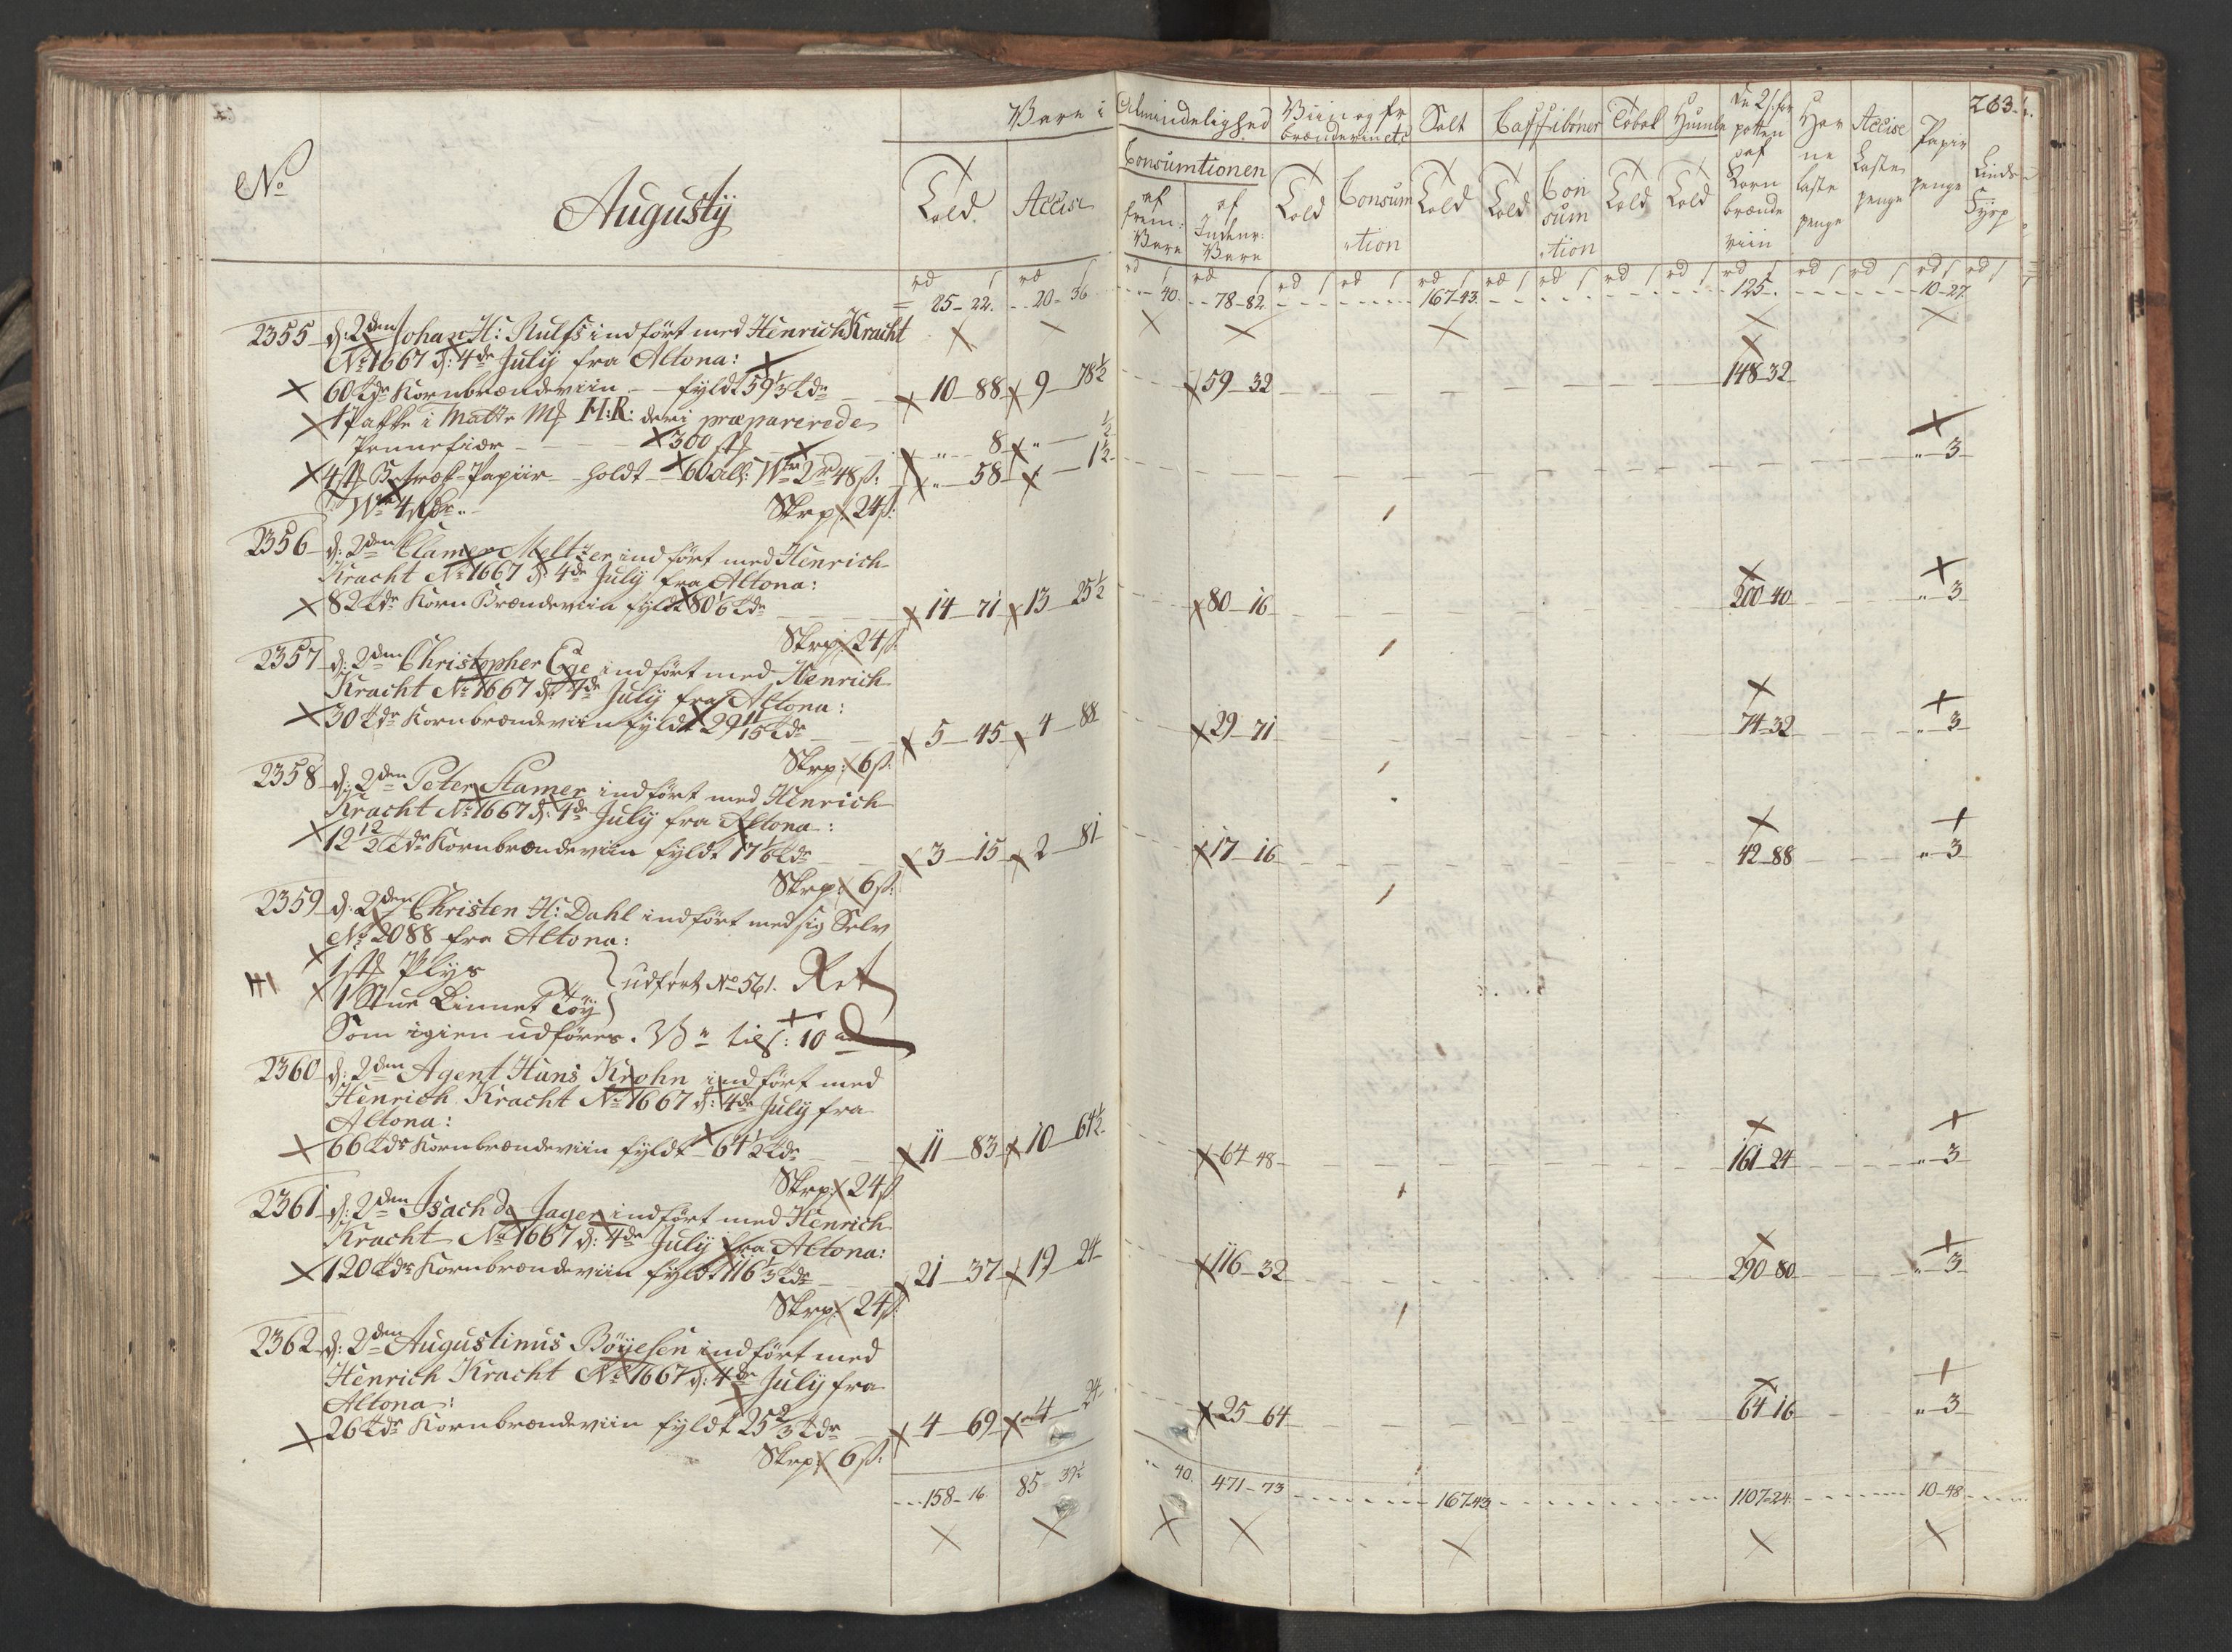 263.
No
Augusty
Vare i Almindelighed
Told.
Accise
Consumtionen
af frem: Vare
af Indenr: Vare
Viin og fr brændeviin etc
Told
Consumtion
Salt
Told
Caffebönner
Told
Consumtion
Tobak
Told
Humle
Told
de 2/ for potten af Korn brændeviin
Havne laste penge
Accise Laste penge
Papir penge
25-22. 20-36 40. 78-82 167-43. 125. 10-27.
2355 d: 2den Johan H: Rulfs indfört med Henrich Kracht
No 1667 d: 4de July fra Altona:
60 tdr Kornbrændeviin fyldt 59 1/3 tdr 10-88 9-78 1/2 59-32 148-32
1 Pakke i Matte Mk H:R: deri præparerede
Pennefiær 300 stk " 8 " 1/2 " 3
4 stk Betræk-Papiir holdt 60 all: Wr 2rd 48ß: " 58 " 1 1/2
Wr 4 Rdr.
Skrp: 24ß:
2356 d: 2den Clamer Meltzer indfört med Henrich
Kracht No 1667 d: 4de July fra Altona:
82 tdr Korn Brændeviin fyldt 80 1/6 tdr 14-71 13-25 1/2 80-16 200-40 " 3
Skrp: 24ß
2357 d: 2den Christopher Ege indfört med Henrich
Kracht No 1667 d: 4de July fra Altona:
30 tdr Kornbrændeviin fyldt 29 11/15 tdr 5-45 4-88 29-71 74-32 " 3
Skrp: 6ß:
2358 d: 2den Peter Stamer indfört med Henrich
Kracht No 1667 d: 4de July fra Altona:
tdr Kornbrændeviin fyldt 17 1/6 tdr 3-15 2-81 17-16 42-88 " 3
Skrp: 6ß:
2359 d: 2den Christen H: Dahl indfört med sig Selv
No 2088 fra Altona:
1 stk Plys
1 Stue Linnet Töy
udfört No 561. Ret
Som igien udföres. Wr tils: 10 rd
2360 d: 2den Agent Hans Krohn indfört med
Henrich Kracht No 1667 d: 4de July fra
Altona:
66 tdr Kornbrændeviin fyldt 64 1/2 tdr 11-83 10-64 1/2 64-48 161-24 " 3
Skrp: 24ß
2361 d: 2den Isach de Jager indfört med Henrich
Kracht No 1667 d: 4de July fra Altona:
120 tdr Kornbrændeviin fyldt 116 1/3 tdr 21-37 19-24 116-32 290-80 " 3
Skrp: 24ß:
2362 d: 2den Augustinus Böyesen indfört med
Henrich Kracht No 1667 d: 4de July fra
Altona:
26 tdr Kornbrændeviin fyldt 25 2/3 tdr 4-69 4-24 25-64 64-16 " 3
Skrp: 6ß:
158-16. 85-39 1/2 40. 471-73 167-43 1107-24. 10-48